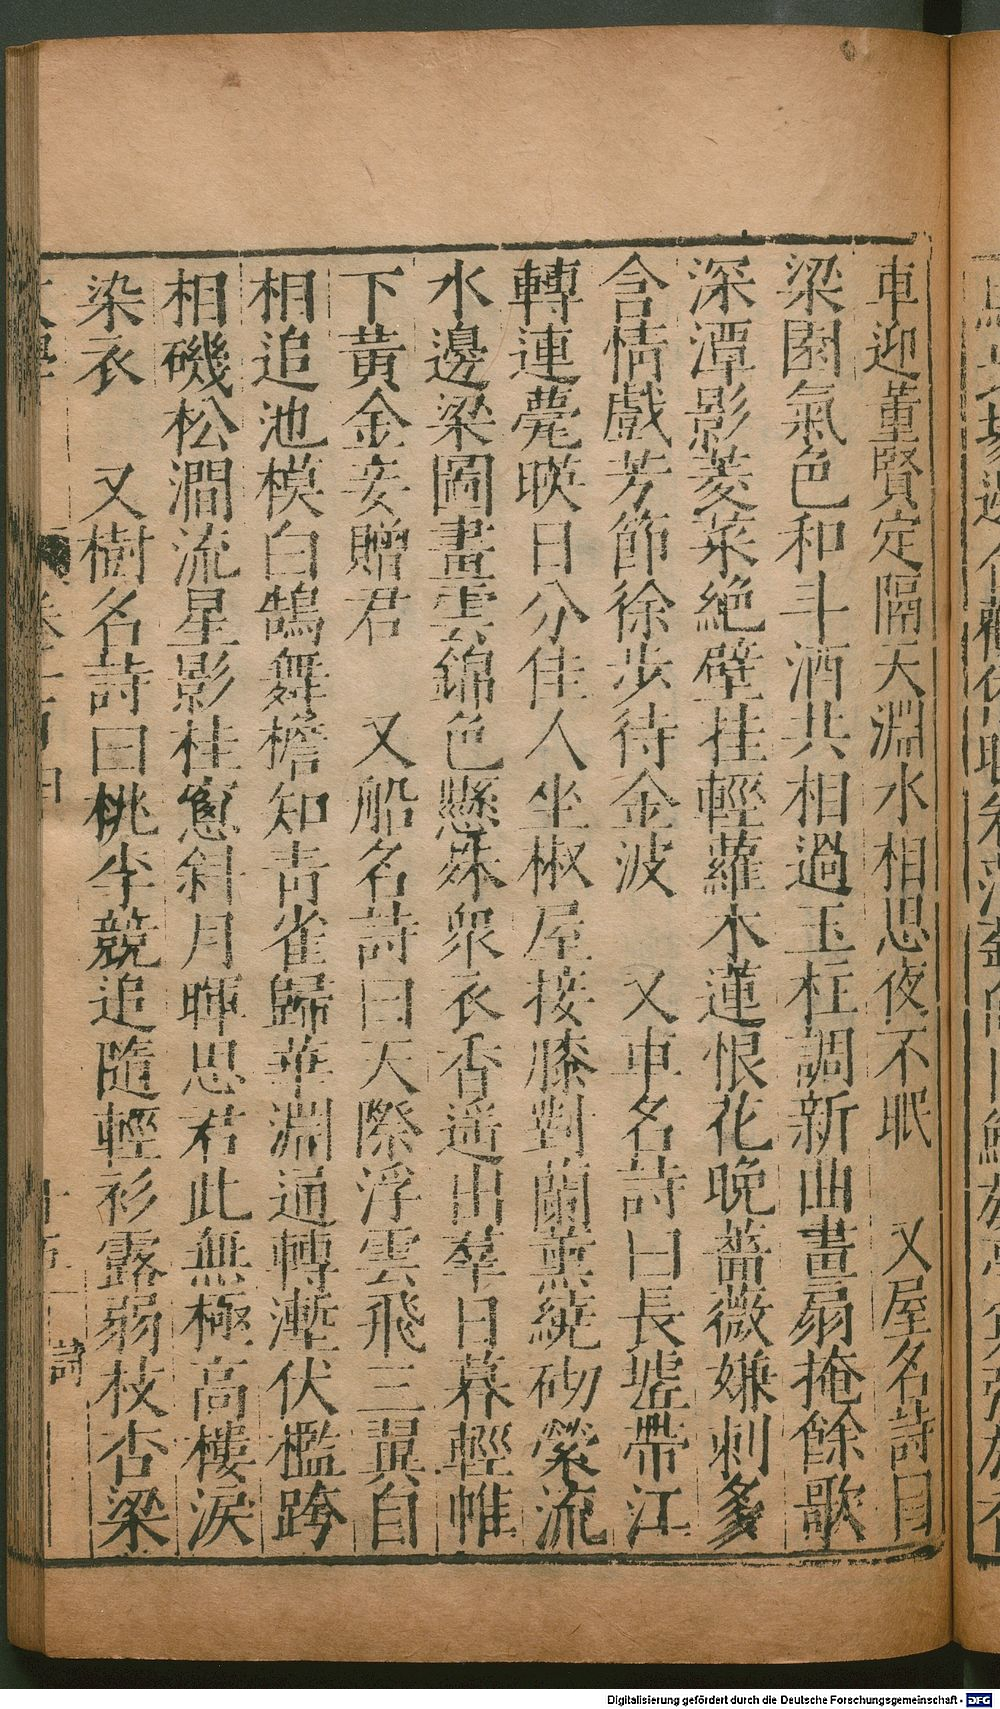 車迎董賢定隔天淵水相思夜不眠　又屋名詩曰
梁園氣色和斗酒共相過玉柱調新曲畫扇掩餘歌
深潭影菱菜絕壁挂輕蘿木蓮恨花晚薔薇嫌刺多
含情戲芳節徐步待金波　又車名詩曰長墟帶江
轉連甍暎日分佳人坐椒屋接膝對蘭薰繞砌縈流
水邊梁圖畫雲錦色懸殊眾衣香遥出羣日暮輕帷
下黃金妾贈君　又船名詩曰天際浮雲飛三翼自
相追池模白鵠舞檐知青雀歸華淵通轉漸伏檻跨
相磯松澗流星影桂窻斜月暉思君此無極高樓淚
染衣　又樹名詩曰桃李競追隨輕衫露弱枝杏梁
詩
Digitalisierung gefördert durch die Deutsche Forschungsgemeinschaft - DFG